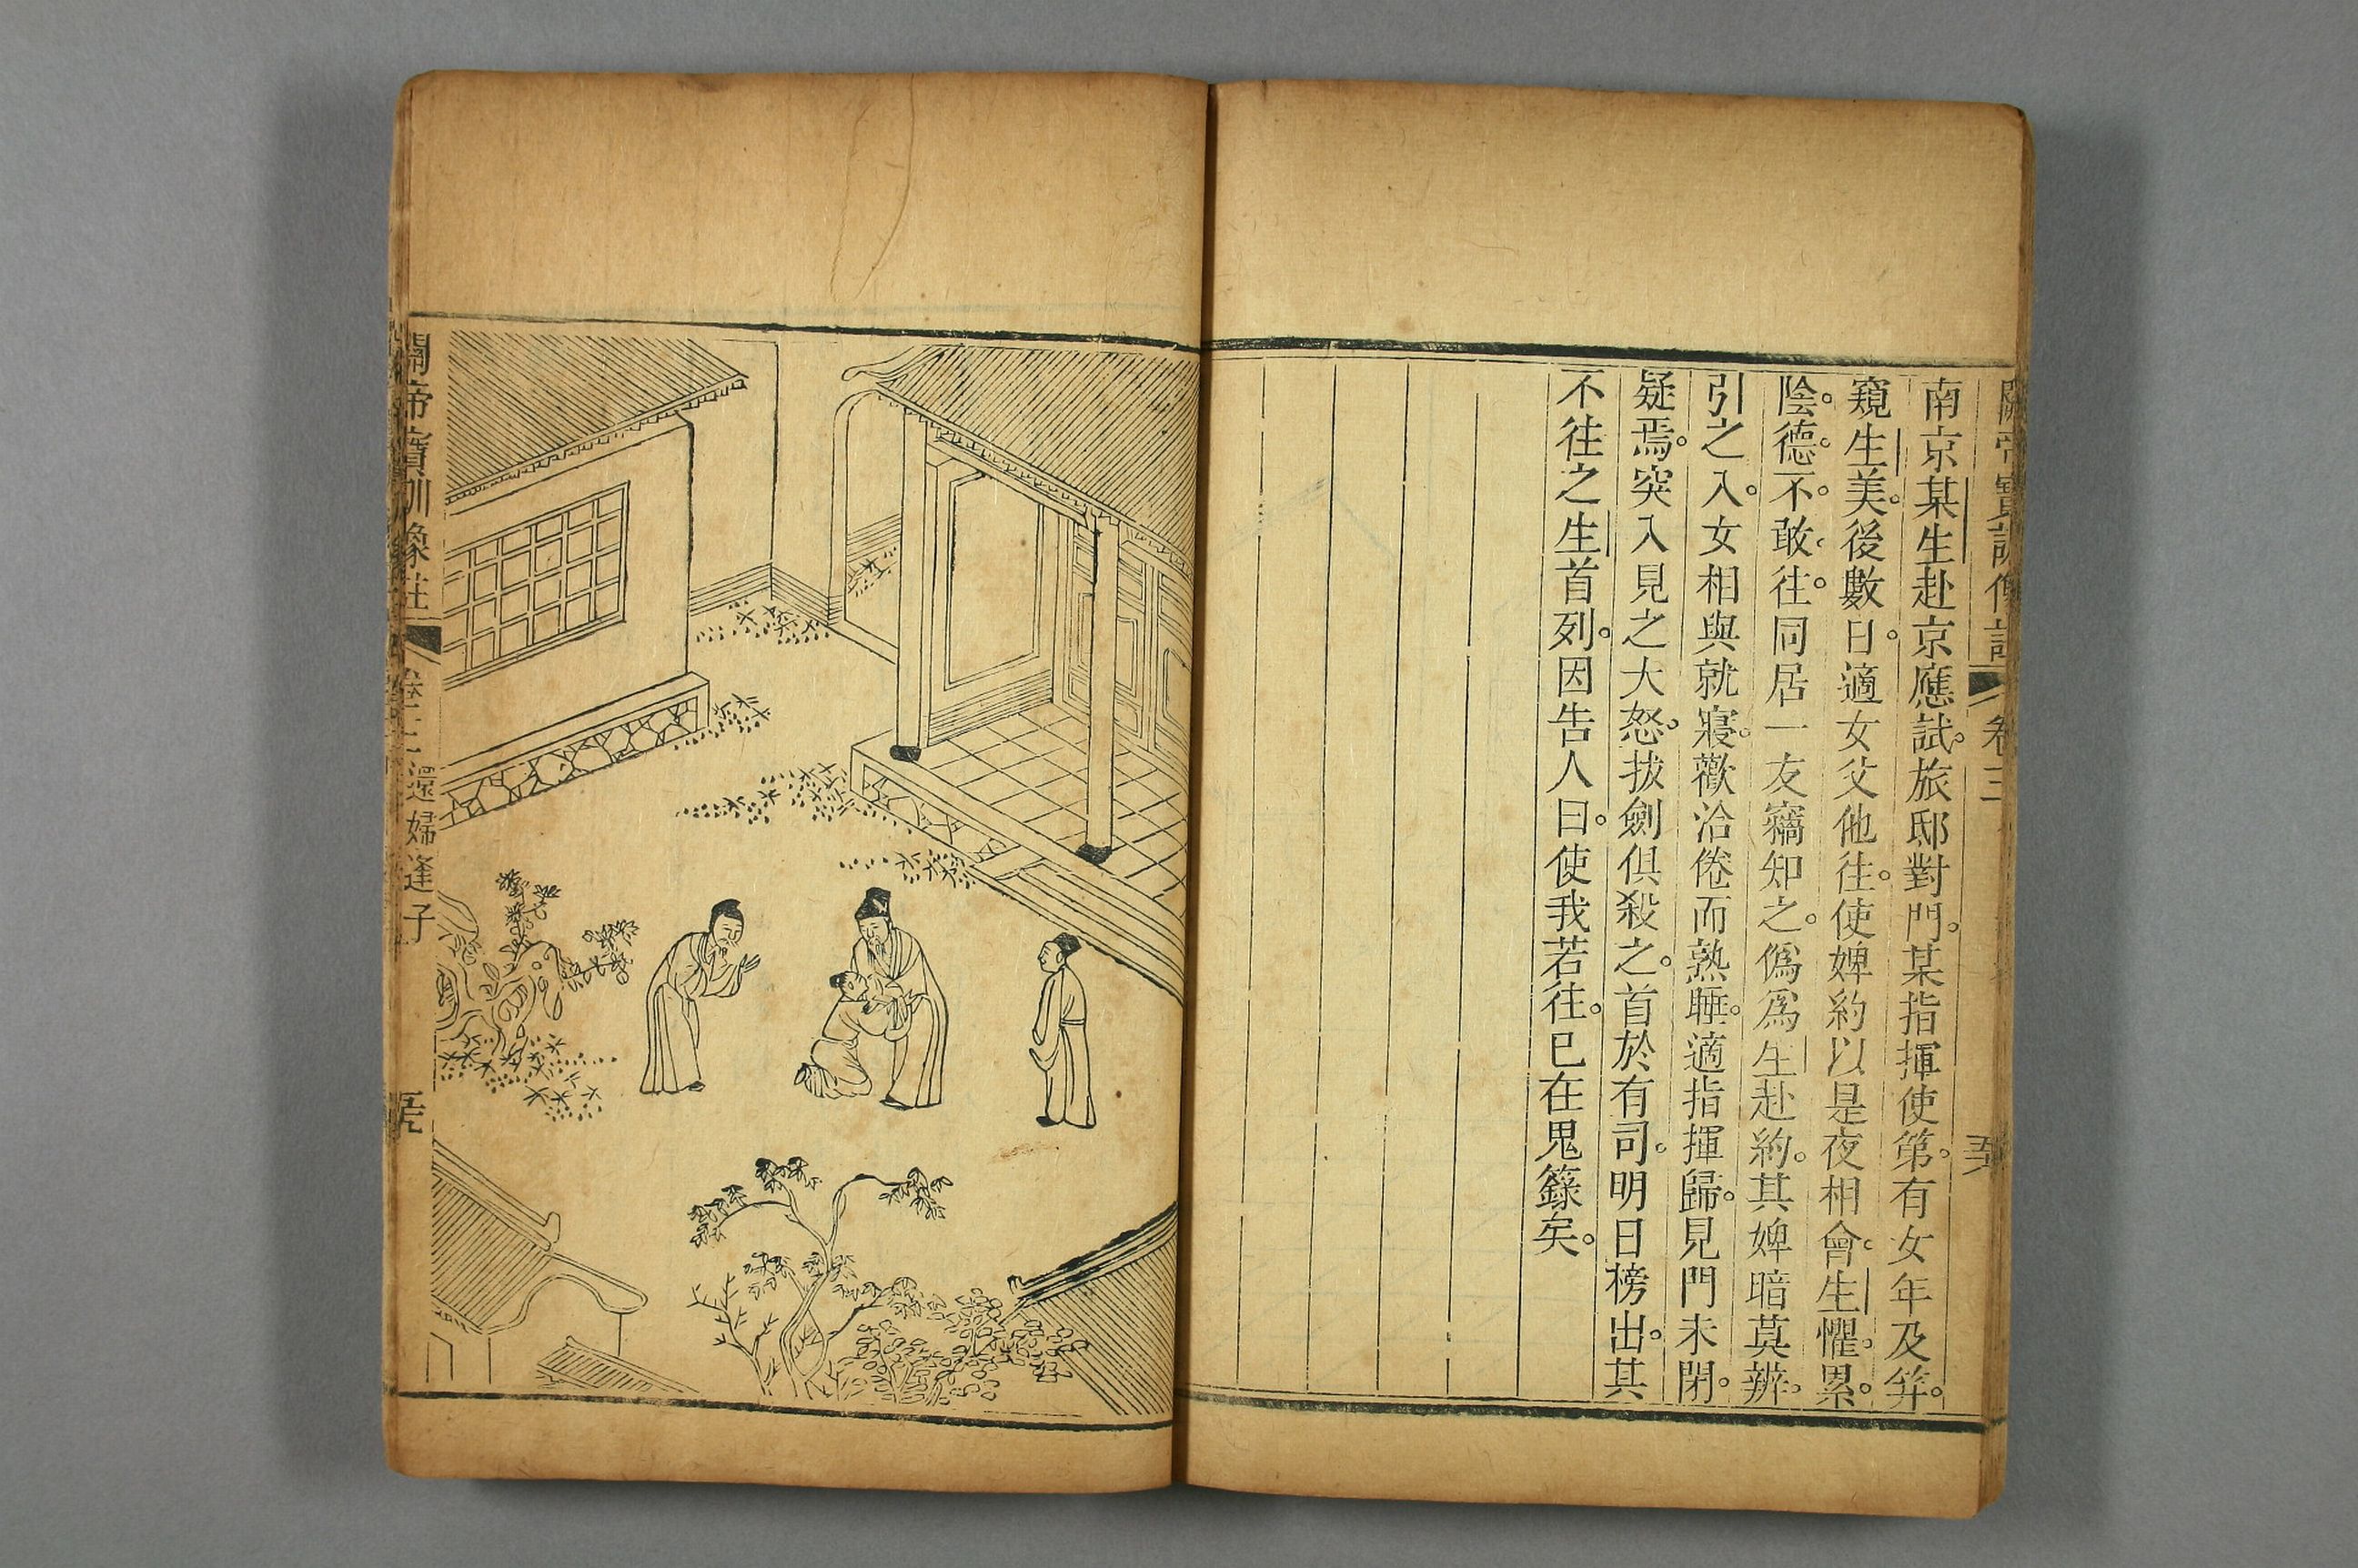 關帝寶訓像註 卷三
南京某生赴京應試。旅邸對門。某指揮使第。有女年及筓。
窺生美。後數日。適女父他往。使婢約以是夜相會。生懼累。
陰。德。不。敢。往。同居一友竊知之。僞爲生赴約。其婢暗莫辨。
引之入。女相與就寢。歡洽倦而熟睡。適指揮歸。見門未閉。
疑焉。突入見之大怒。拔劍俱殺之。首於有司。明日榜出。其
不往之生首列。因告人曰。使我若往。已在鬼籙矣。
關帝寶訓像註 卷三 還婦逢子